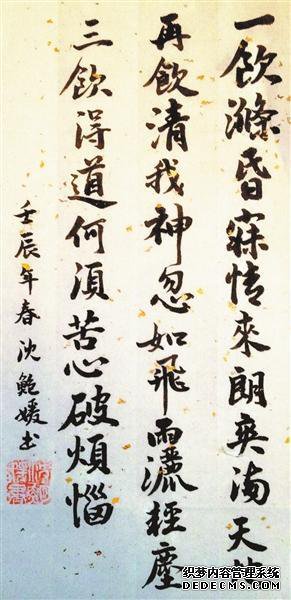 一飲滌昏寐情來朗爽満天
再飲清我神忽如飛雨灑輕塵
三飲得道何須苦心破煩惱
壬辰年春沈鮑媛书
织梦内容管理系统
DEDECMS.COM